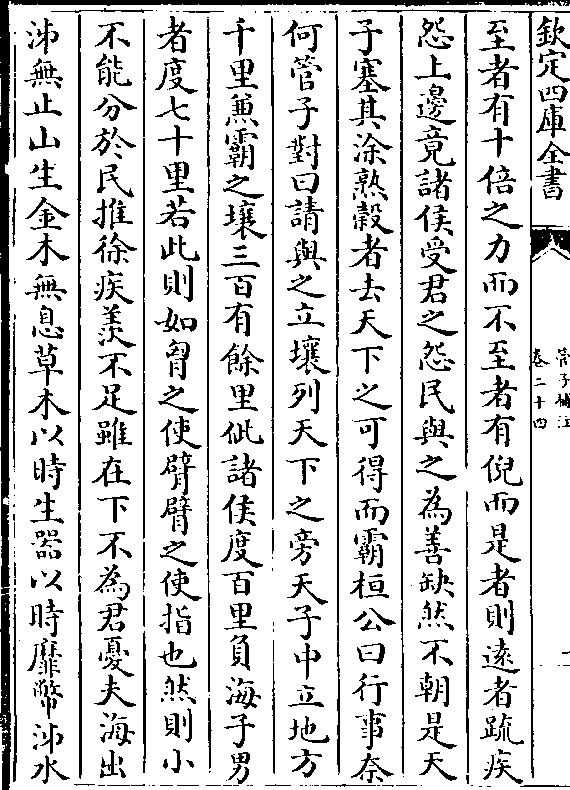 欽定四庫全書
管子補注
卷二十四
至者有十倍之力而不至者有倪而是者則遠者疏疾
怨上邊竟諸侯受君之怨民與之為善缺然不朝是天
子塞其涂熟穀者去天下之可得而霸桓公曰行事奈
何管子對曰請與之立壤列天下之旁天子中立地方
千里兼霸之壤三百有餘里佌諸侯度百里負海子男
者度七十里若此則如胷之使臂臂之使指也然則小
不能分於民推徐疾羡不足雖在下不為君憂夫海出
沸無止山生金木無息草木以時生器以時靡幣沸水